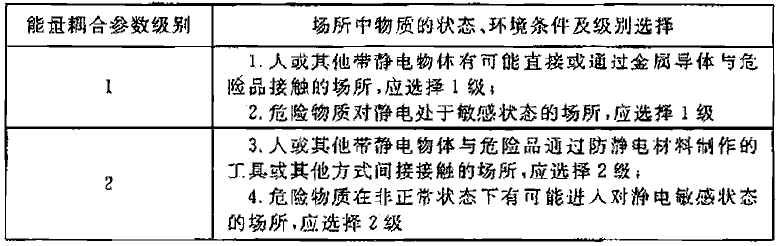 能量耦合参数级别
场所中物质的状态、环境条件及级别选择
1
1.人或其他带静电物体有可能直接或通过金属导体与危
险品接触的场所,应选择1级;
2.危险物质对静电处于敏感状态的场所,应选择1级
2
3.人或其他带静电物体与危险品通过防静电材料制作的
工具或其他方式间接接触的场所,应选择2级;
4.危险物质在非正常状态下有可能进入对静电敏感状态
的场所,应选择2级